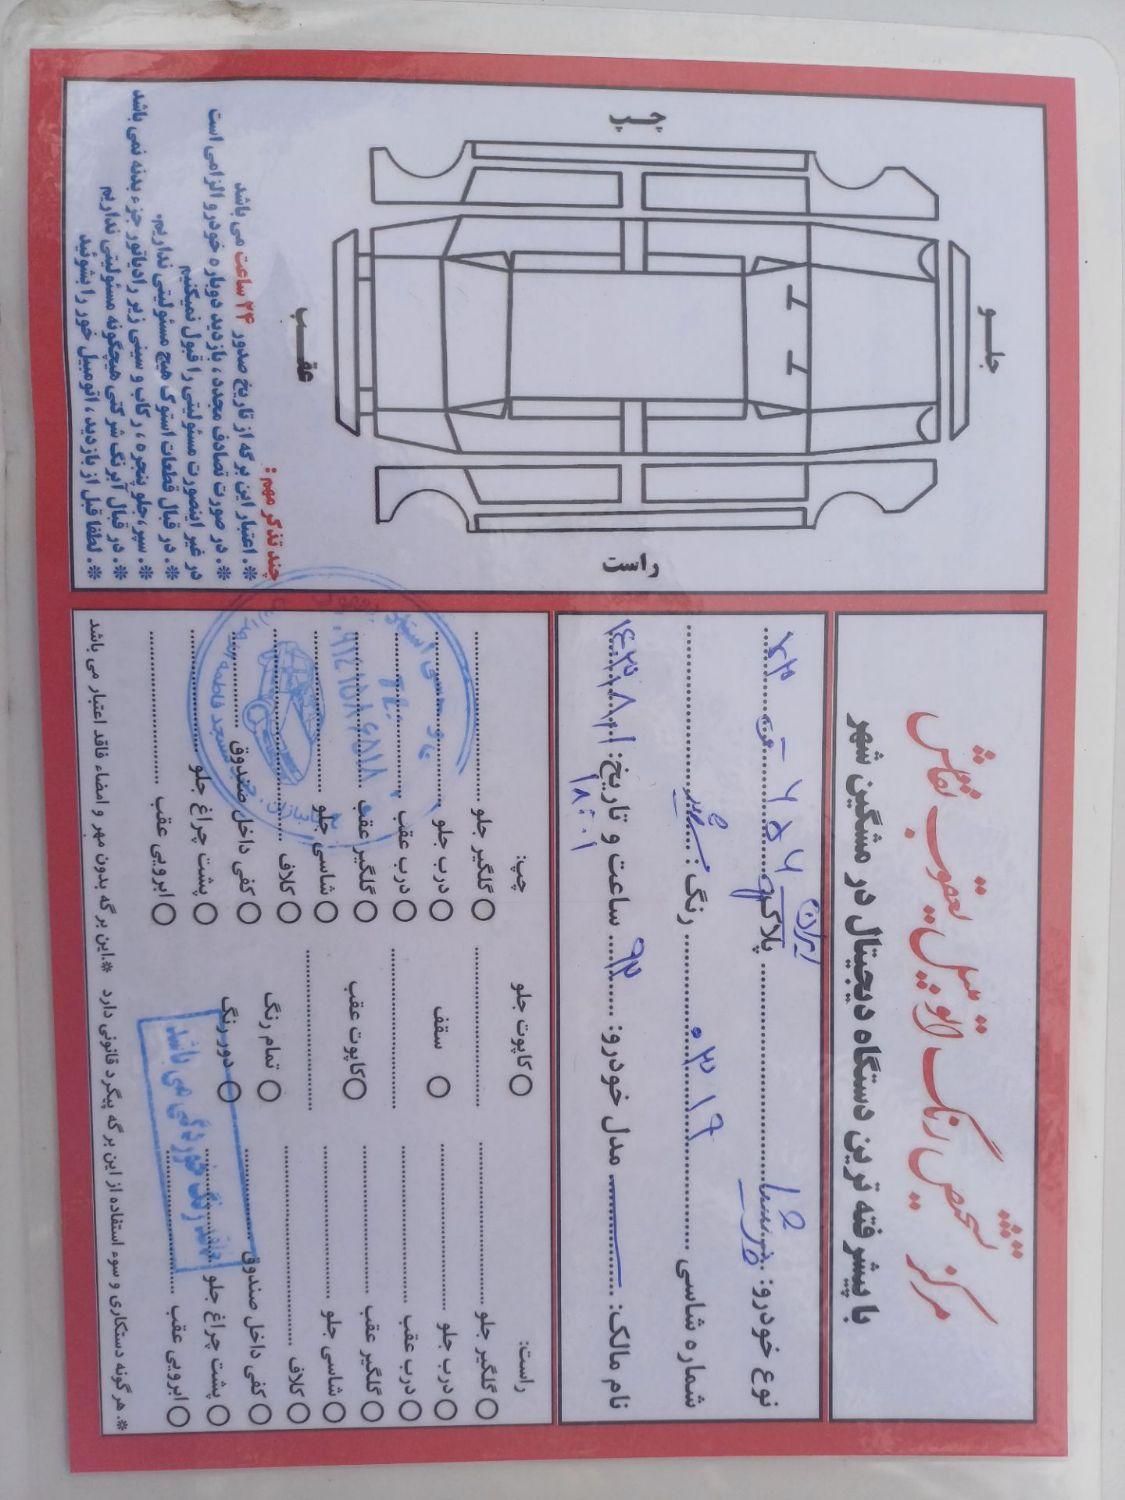 مرکز تشخیص رنگ اتومبیل یعقوب نقاش
با پیشرفته ترین دستگاه دیجیتال در مشگین شهر
نوع خودرو: پرشیا پلاک
ایران
شماره شاسی ۰۳۱۹ رنگ: سفید
نام مالک: مدل خودرو: ۹۳ ساعت و تاریخ:
۱۸:۰۱
راست:
گلگیر جلو
درب جلو
درب عقب
گلگیر عقب
شاسی جلو
کلاف
کفی داخل صندوق
پشت چراغ جلو
ابرویی عقب
کاپوت جلو
سقف
کاپوت عقب
تمام رنگ
دور رنگ
چپ:
گلگیر جلو
درب جلو
درب عقب
گلگیر عقب
شاسی جلو
کلاف
کفی داخل صندوق
پشت چراغ جلو
ابرویی عقب
فاقد رنگ خوردگی می باشد
※. هر گونه دستکاری و سوء استفاده از این برگه پیگرد قانونی دارد ※.این برگه بدون مهر و امضاء فاقد اعتبار می باشد
چپ
جلو
عقب
راست
چند تذکر مهم:
※. اعتبار این برگه از تاریخ صدور ۲۴ ساعت می باشد
※. در صورت تصادف مجدد، بازدید دوباره خودرو الزامی است
در غیر اینصورت مسئولیتی را قبول نمیکنیم
※. در قبال قطعات استوک هیچ مسئولیتی نداریم.
※. سپر،جلو پنجره ، رکاب و سینی زیر رادیاتور جزء بدنه نمی باشد
※. در قبال آبرنگ شرکتی هیچگونه مسئولیتی نداریم
※. لطفا قبل از بازدید ، اتومبیل خور را بشوئید